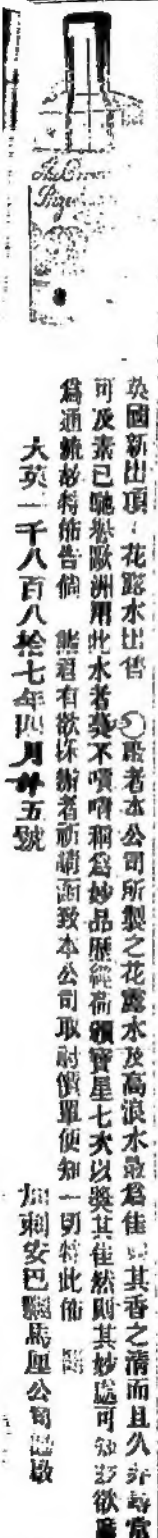 英國新出頂 花露水出售 啟者本公司所製之花露水及高浪水最為佳 其香之清而且久 尋常
可及素已馳松歐洲用此水者莫不嘖嘖稱為妙品歷經高頒寶星七次以獎其佳然則其妙處可知 欲廣
為通銷故特佈告倘 諸君有欲採辦者祈請函致本公司取討價單便知一切特此佈
大英一千八百八拾七年四月廿五號
加剌安巴 馬厘公司 啟
The Crown